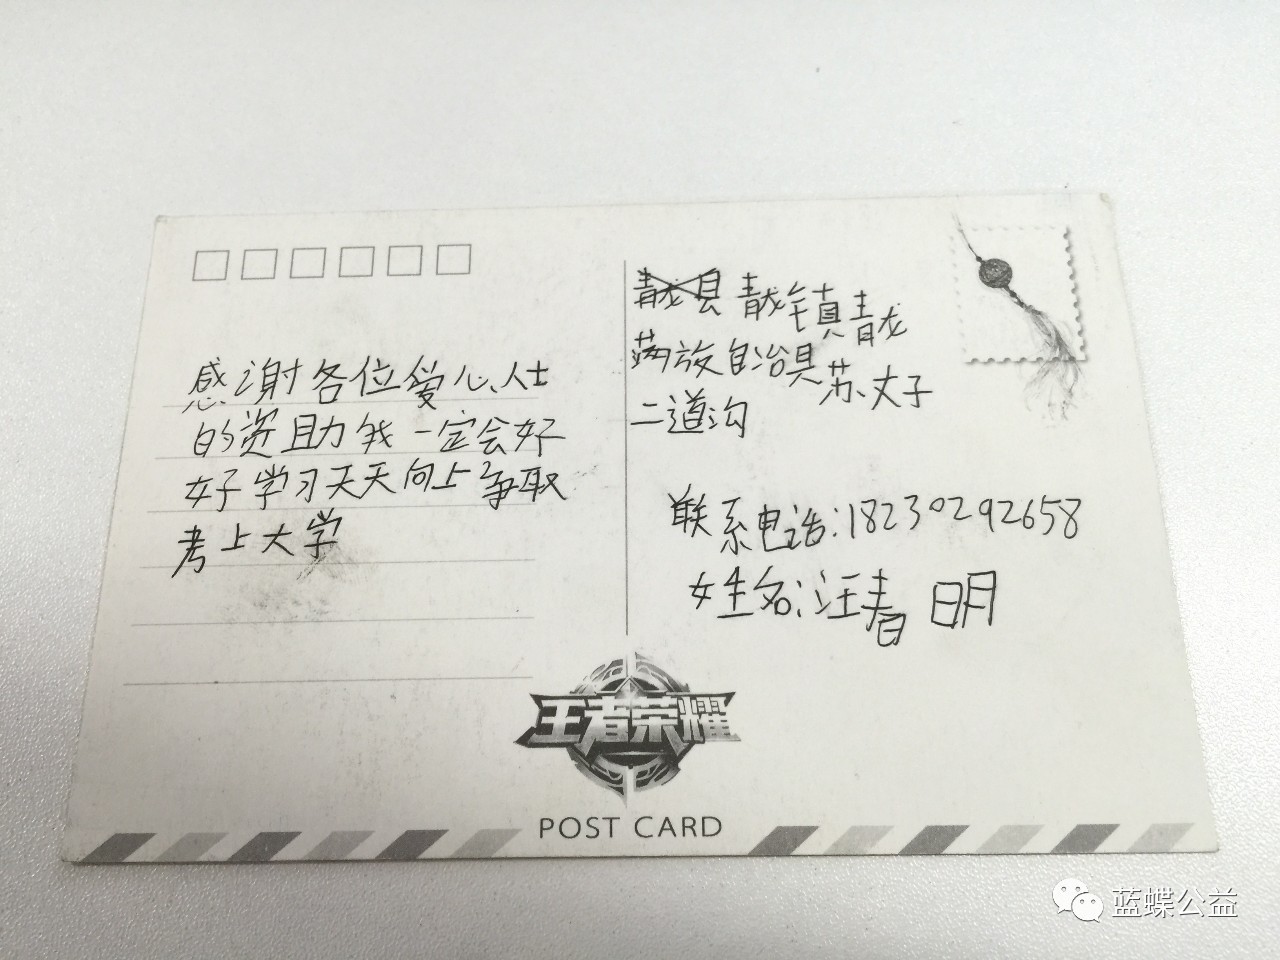 感谢各位爱心人士
的资助我一定会好
好学习天天向上争取
考上大学
青龙县 青龙镇青龙
满放自治具苏丈子
二道沟
联系电话:18230292658
姓名:汪春明
王者荣耀
POST CARD
蓝蝶公益